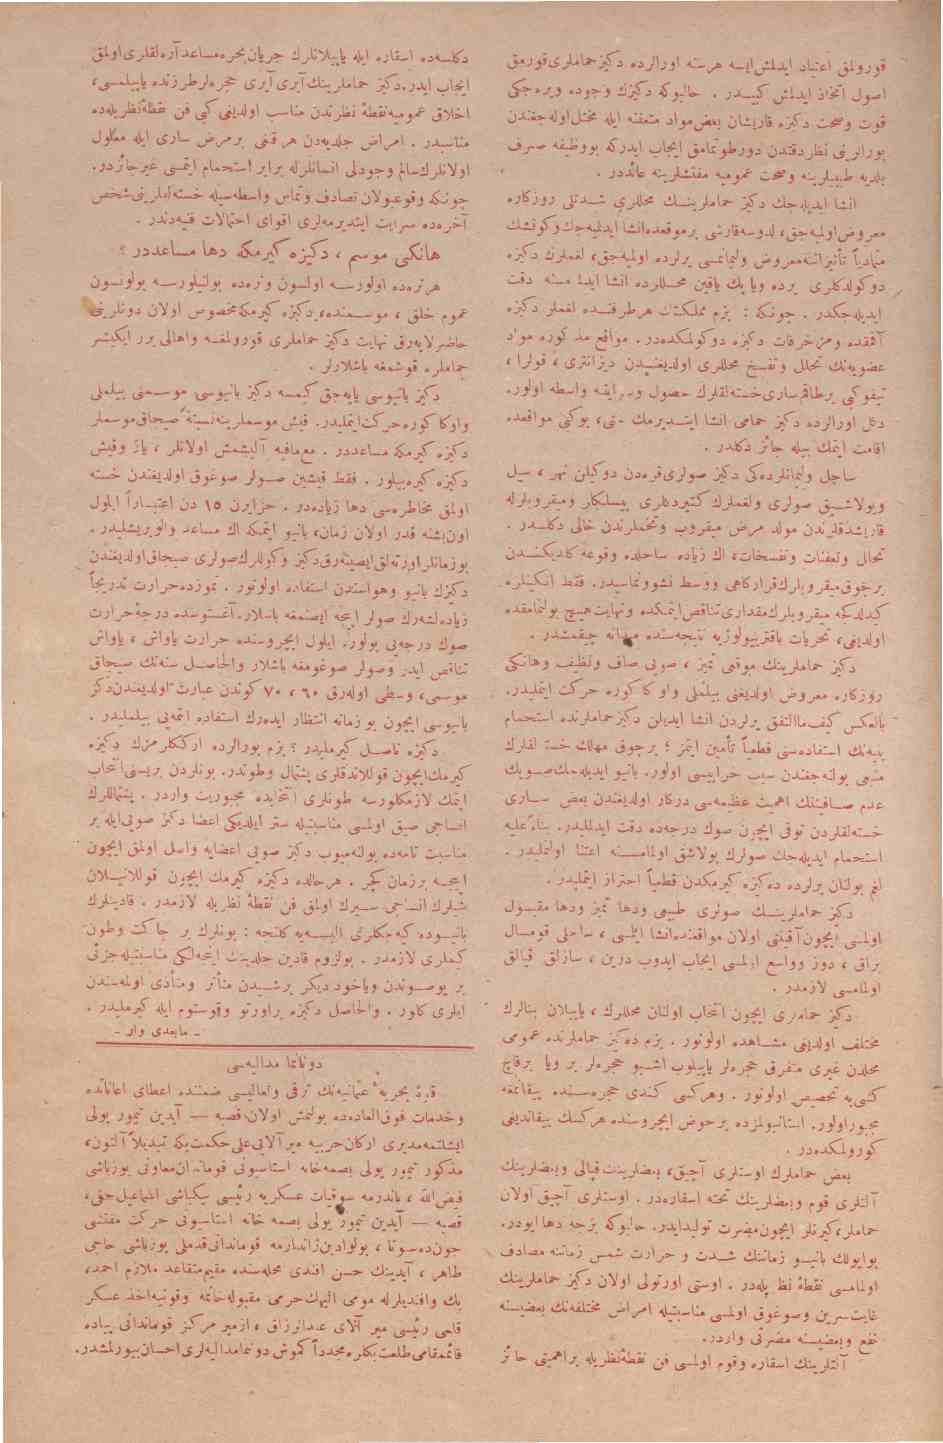 قورولمق اعتیاد ایدلمش ایسه هرسنه اورالرده دكیز حماملری قورمق
اصول اتخاذ ایدلمش كیبدر . حالبوكه دكیزك وجوده ویره‌جكی
قوت وصحت دكیزه قاریشان بعض مواد متعفنه ایله مختل اوله‌جغندن
بورالرینی نظر دقتدن دور طوتمامق ایجاب ایدركه بووظیفه صرف
بلدیه طبیبلرینه وصحت عمومیه مفتشلرینه عائددر .
انشا ایدیله‌جك دكیز حماملرینك محللری شدتلی روزكاره
معروض اولمیه‌جق، لدوسه قارشی برموقعده انشا ایدلمیه‌جك وكونشك
متمادیاً تأثیراتنه معروض ولیمانمسی یرلرده اولمیه‌جق، لغملرك دكیزه
دوكولدكلری یرده ویا پك یاقین محللرده انشا ایدلمامسنه دقت
ایدیله‌جكدر . چونكه : بزم مملكتك هر طرفنده لغملر دكیزه
آقمقده ومزخرفات دكیزه دوكولمكده‌در . مواقع مذكوره مواد
عضویه‌نك تحلل وتفسخ محللری اولدیغندن دیزانتری ، قولرا ،
تیفو كبی برطاقم ساری خسته‌لقلرك حصول وسرایتنه واسطه اولور.
دكل اورالرده دكیز حمامی انشا ایتدیرمك حتی، بوكبی مواقعده
اقامت ایتمك بیله جائز دكلدر .
ساحل ولیمانلرده‌كی دكیز صولری قره‌دن دوكیلن نهر ، سیل
وبولاشیق صولری ولغملرك كتیردكلری پیسلكلر ومیقروبلرله
قاریشدقلرندن مولد مرض میقروب وتخملرندن خالی دكلدر .
تحلل وتعفنات وتفسخات، اك زیاده ساحلده وقوعه كلدیكندن
برچوق میقروبلرك قراركاهی ووسط نشوونماسیدر. فقط انكینلره
كیدلدكجه میقروبلرك مقداری تناقص ایتمكده ونهایت هیچ بولنمامقده
اولدیغی، تحریات باقتریولوژیه نتیجه‌سنده میدانه چیقمشدر .
دكیز حماملرینك موقعی تمیز ، صویی صاف ونظیف وهانكی
روزكاره معروض اولدیغی بیلملی واوكا كوره حركت ایتملیدر.
بالعكس كیف ماالتفق یرلردن انشا ایدیلن دكیز حماملرنده استحمام
بنیه‌نك استفاده‌سنی قطعیاً تأمین ایتمز ؛ برچوق مهلك خسته‌لقلرك
منبعی بولنه‌جغندن سبب خرابیسی اولور. بانیو ایدیله‌جك صویك
عدم صافیتنك اهمیت عظیمه‌سی دركار اولدیغندن بعض ساری
خسته‌لقلردن توقی ایچون صوك درجه‌ده دقت ایدلملیدر. بناءً علیه
استحمام ایدیله‌جك صولرك بولاشق اولمامسنه اعتنا اولنملیدر .
لغم بولنان یرلرده ده‌كیزه كیرمكدن قطعیاً احتراز ایتملیدر .
دكیز حماملرینك صولری طبیعی ودها تمیز ودها مقبول
اولمسی ایچون آقینتی اولان مواقعنده انشا ایتملی ، ساحلی قومسال
براق ، دوز وواسع اولمسی ایجاب ایدوب درین ، سازلق قیالق
اولمامسی لازمدر .
دكیز حماملری ایچون انتخاب اولنان محللرك ، یاپیلان بنالرك
مختلف اولدیغی مشاهده اولونور . بزم ده‌كیز حماملرنده عمومی
محلدن غیری متفرق حجره‌لر یاپیلوب اشبو حجره‌لر بر ویا برقاچ
كشی‌یه تخصیص اولونور . وهركس كندی حجره‌سنده ییقانمغه
مجبور اولور. استانبولمزده برحوض ایچروسنده هركسك ییقاندیغی
كورولمكده‌در .
بعض حماملرك اوستلری آچیق، بعضلرینك قپالی وبعضلرینك
آلتلری قوم وبعضلرینك تخته اسقاره‌در . اوستلری آچیق اولان
حماملر، كیرنلر ایچون مضرت تولید ایدر. حالبوكه بزجه دها ایودر.
بوایولك بانیو زماننك شدت و حرارت شمس زماننه مصادف
اولمامسی نقطهٔ نظریله‌در . اوستی اورتولی اولان دكیز حماملرینك
غایت سرین وصوغوق اولمسی مناسبتیله امراض مختلفه‌نك بعضیسنه
نفع وبعضیسنه مضرتی واردر.
آلتلرینك اسقاره وقوم اولمسی فن نقطهٔ نظریله براهمیتی حائز
دكلسه‌ده اسقاره ایله یاپیلانلرك جریان بحره مساعد آره‌لقلری اولمق
ایجاب ایدر. دكیز حماملرینك آیری آیری حجره‌لر طرزنده یاپیلمسی،
اخلاق عمومیه نقطهٔ نظرندن مناسب اولدیغی كبی فن نقطهٔ نظریله‌ده
مناسبدر . امراض جلدیه‌دن هر قنغی برمرض ساری ایله معلول
اولانلرك سالم وجودلی انسانلرله برابر استحمام ایتمسی غیر جائزدر.
چونكه وقوعبولان تصادف وتماس واسطه‌سیله خسته‌لقلرینی شخص
آخره‌ده سرایت ایتدیرمه‌لری اقوای احتمالات فنیه‌دندر .
هانكی موسم ، دكیزه گیرمكه دها مساعددر ؟
هر نره‌ده اولورسه اولسون ونره‌ده بولنیلورسه بولونسون
عموم خلق ، موسمنده، دكیزه كیرمكه مخصوص اولان دونلرینی
حاضرلایه‌رق نهایت دكیز حماملری قورولمغه واهالی برر ایكیشر
حماملره قوشمغه باشلارلر .
دكیز بانیوسی یاپه‌جق كیمسه دكیز بانیوسی موسمنی بیلملی
واوكا كوره حركت ایتملیدر. قیش موسملرینه نسبتةً صیجاق موسملر
دكیزه كیرمكه مساعددر . مع‌مافیه آلیشمش اولانلر ، یاز وقیش
دكیزه كیره‌بیلور . فقط قیشین صولر صوغوق اولدیغندن خسته
اولمق مخاطره‌سی دها زیاده‌در . حزیران ١٥ دن اعتباراً ایلول
اون بشنه قدر اولان زمان، بانیو ایتمكه اك مساعد والویریشلیدر .
بوزمانلر اورته‌لق ایصینه‌رق دكیز وكوللرك صولری صیجاق اولدیغندن
دكیزك بانیو وهواسندن استفاده اولونور . تموزده حرارت تدریجاً
زیاده‌لشه‌رك صولر ایجه ایصنمغه باشلار. آغستوسده درجهٔ حرارت
صوك درجه‌یی بولور. ایلول ایچروسنده حرارت یاواش ، یاواش
تناقص ایدر وصولر صوغومغه باشلار والحاصل سنه‌نك صیجاق
موسمی، وسطی اوله‌رق ٦٠ ، ٧٠ كوندن عبارت اولدیغندن دكز
بانیوسی ایچون بو زمانه انتظار ایده‌رك استفاده ایتمه‌یی بیلملیدر .
دكیزه ناصل كیرملیدر ؟ بزم بورالرده ارككلرمزك دكیزه
كیرمك ایچون قوللاندقلری پشتمال وطوندر. بونلردن بریسنی انتخاب
ایتمك لازمكلورسه طونلری انتخابده مجبوریت واردر . پشتماللرك
انساجی صیق اولمسی مناسبتیله ستر ایلدیكی اعضا دكز صویی ایله بر
مناسبت تامه‌ده بولنه‌میوب دكیز صویی اعضایه واصل اولمق ایچون
ایجه برزمان كچر . هر حالده دكیزه كیرمك ایچون قوللانیلان
شیلرك انساجی سیرك اولمق فن نقطهٔ نظریله لازمدر . قادینلرك
بانیوده كیه‌جكلری البسه‌یه كلنجه : بونلرك بر جاكت وطون
كیملری لازمدر . بولزوم قادین جلدینك اینجه‌لكی مناسبتیله جزئی
بر یوصوندن ویاخود دیكر برشیدن متأثر ومتأذی اولمه‌سندن
ایلری كلور . والحاصل دكیزه براورتو وقوستوم ایله كیرملیدر .
– مابعدی وار –
دونانما مدالیه‌سی
قوهٔ بحریهٔ عثمانیه‌نك ترقی وتعالیسی ضمننده اعطای اعاناتده
وخدمات فوق‌العاده‌ده بولنمش اولان قصبه — آیدین تیمور یولی
ایشلتمه مدیری اركان حربیه میرآلایی علی حكمت بكه تبدیلاً آلتون،
مذكور تیمور یولی بصمه‌خانه استاسیونی قوماندان معاونی یوزباشی
فیض الله ، باندرمه سوقیات عسكریه رئیسی بیكباشی اسماعیل حقی،
قصبه — آیدین تیمور یولی بصمه خانه استاسیونی حركت مفتشی
جون ده‌سوتا ، بولوادین ژاندارمه قوماندانی قدملی یوزباشی حاجی
طاهر ، آیدینك حسن افندی محله‌سنده مقیم متقاعد ملازم احمد،
بك وافندیلرله مومی الیهك حرمی مقبوله خانمه وقونیه اخذ عسكر
قلمی رئیسی میر آلای عبدالرزاق ، ازمیر مركز قوماندانی پیاده
قائمقامی طلعت بكلره مجدداً كموش دونانما مدالیه‌لری احسان بیورلمشدر.